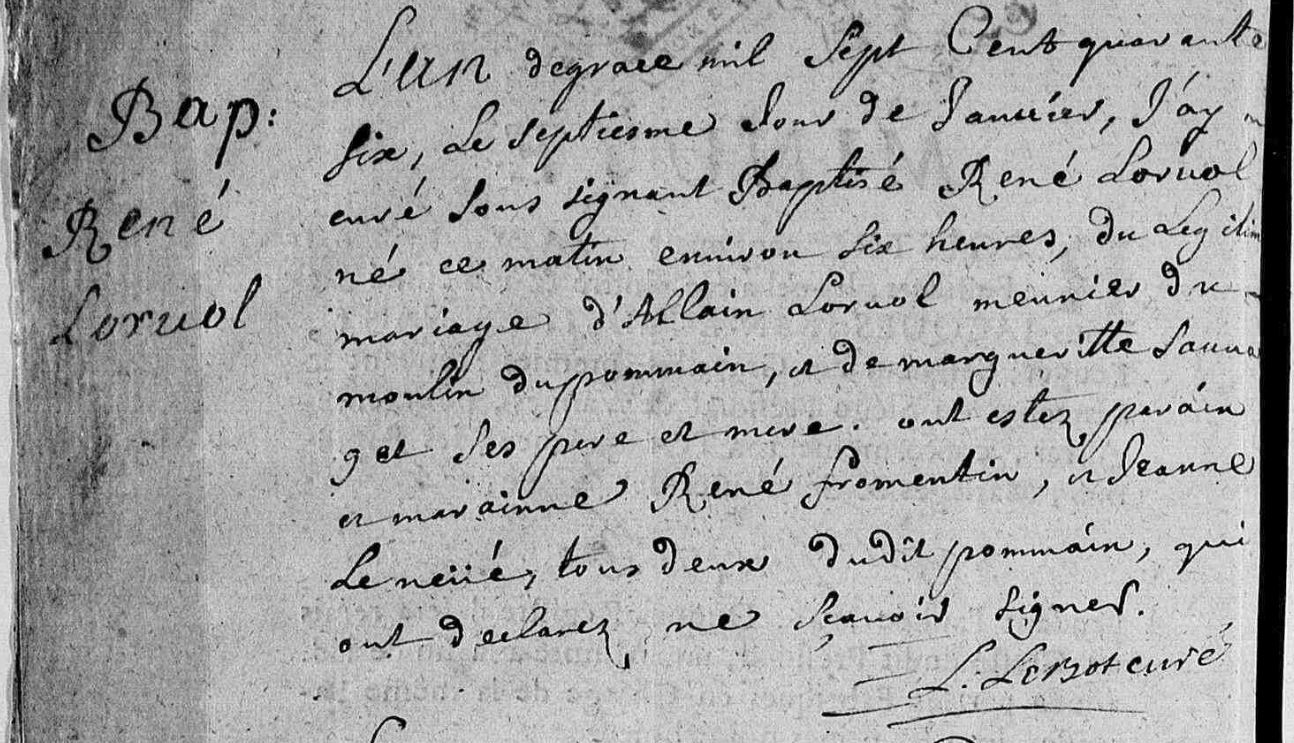 Bap:
René
Loruol
L'an degrace mil sept Cent quarante
six, Le septiesme Jour de Januier, J'ay
curé sous signant Baptisé René Loruol
né ce matin enuiron six heures, du Legitim
mariage d'Allain Loruol meunier du
moulin dupommain, et de margueritte Sauua
get ses pere et mere. ont estez parain
et marainne René fromentin, et Jeanne
Le neüé, tous deux dudit pommain, qui
ont declarez ne sçauoir signer.
L: Lebot curé